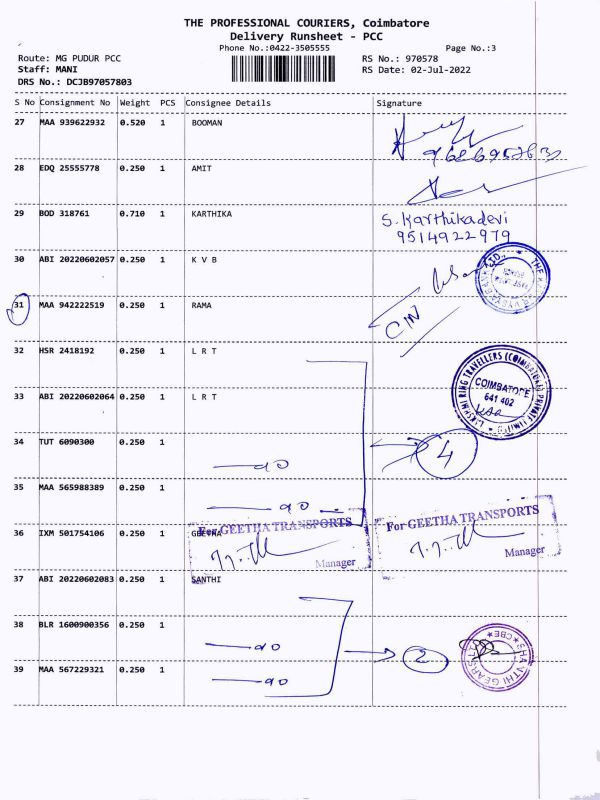 THE PROFESSIONAL COURIERS, Coimbatore
Delivery Runsheet - PCC
Phone No.:0422-3505555
Page No.:3
Route: MG PUDUR PCC
RS No.: 970578
Staff: MANI
RS Date: 02-Jul-2022
DRS No.: DCJB97057803
S No Consignment No Weight PCS Consignee Details Signature
27 MAA 939622932 0.520 1 BOOMAN
28 EDQ 25555778 0.250 1 AMIT
29 BOD 318761 0.710 1 KARTHIKA
S. Karthikadevi
9514922979
30 ABI 20220602057 0.250 1 K V B
31 MAA 942222519 0.250 1 RAMA
C/N
32 HSR 2418192 0.250 1 L R T
LAKSHMI RING TRAVELLERS (COIMBATORE) PRIVATE LIMITED
COIMBATORE
641 402
33 ABI 20220602064 0.250 1 L R T
34 TUT 6090300 0.250 1
4
35 MAA 565988389 0.250 1
36 IXM 501754106 0.250 1 GEETHA
For GEETHA TRANSPORTS
Manager
For GEETHA TRANSPORTS
Manager
37 ABI 20220602083 0.250 1 SANTHI
38 BLR 1600900356 0.250 1
2
SHANTHI GEARS LTD
CBE
39 MAA 567229321 0.250 1